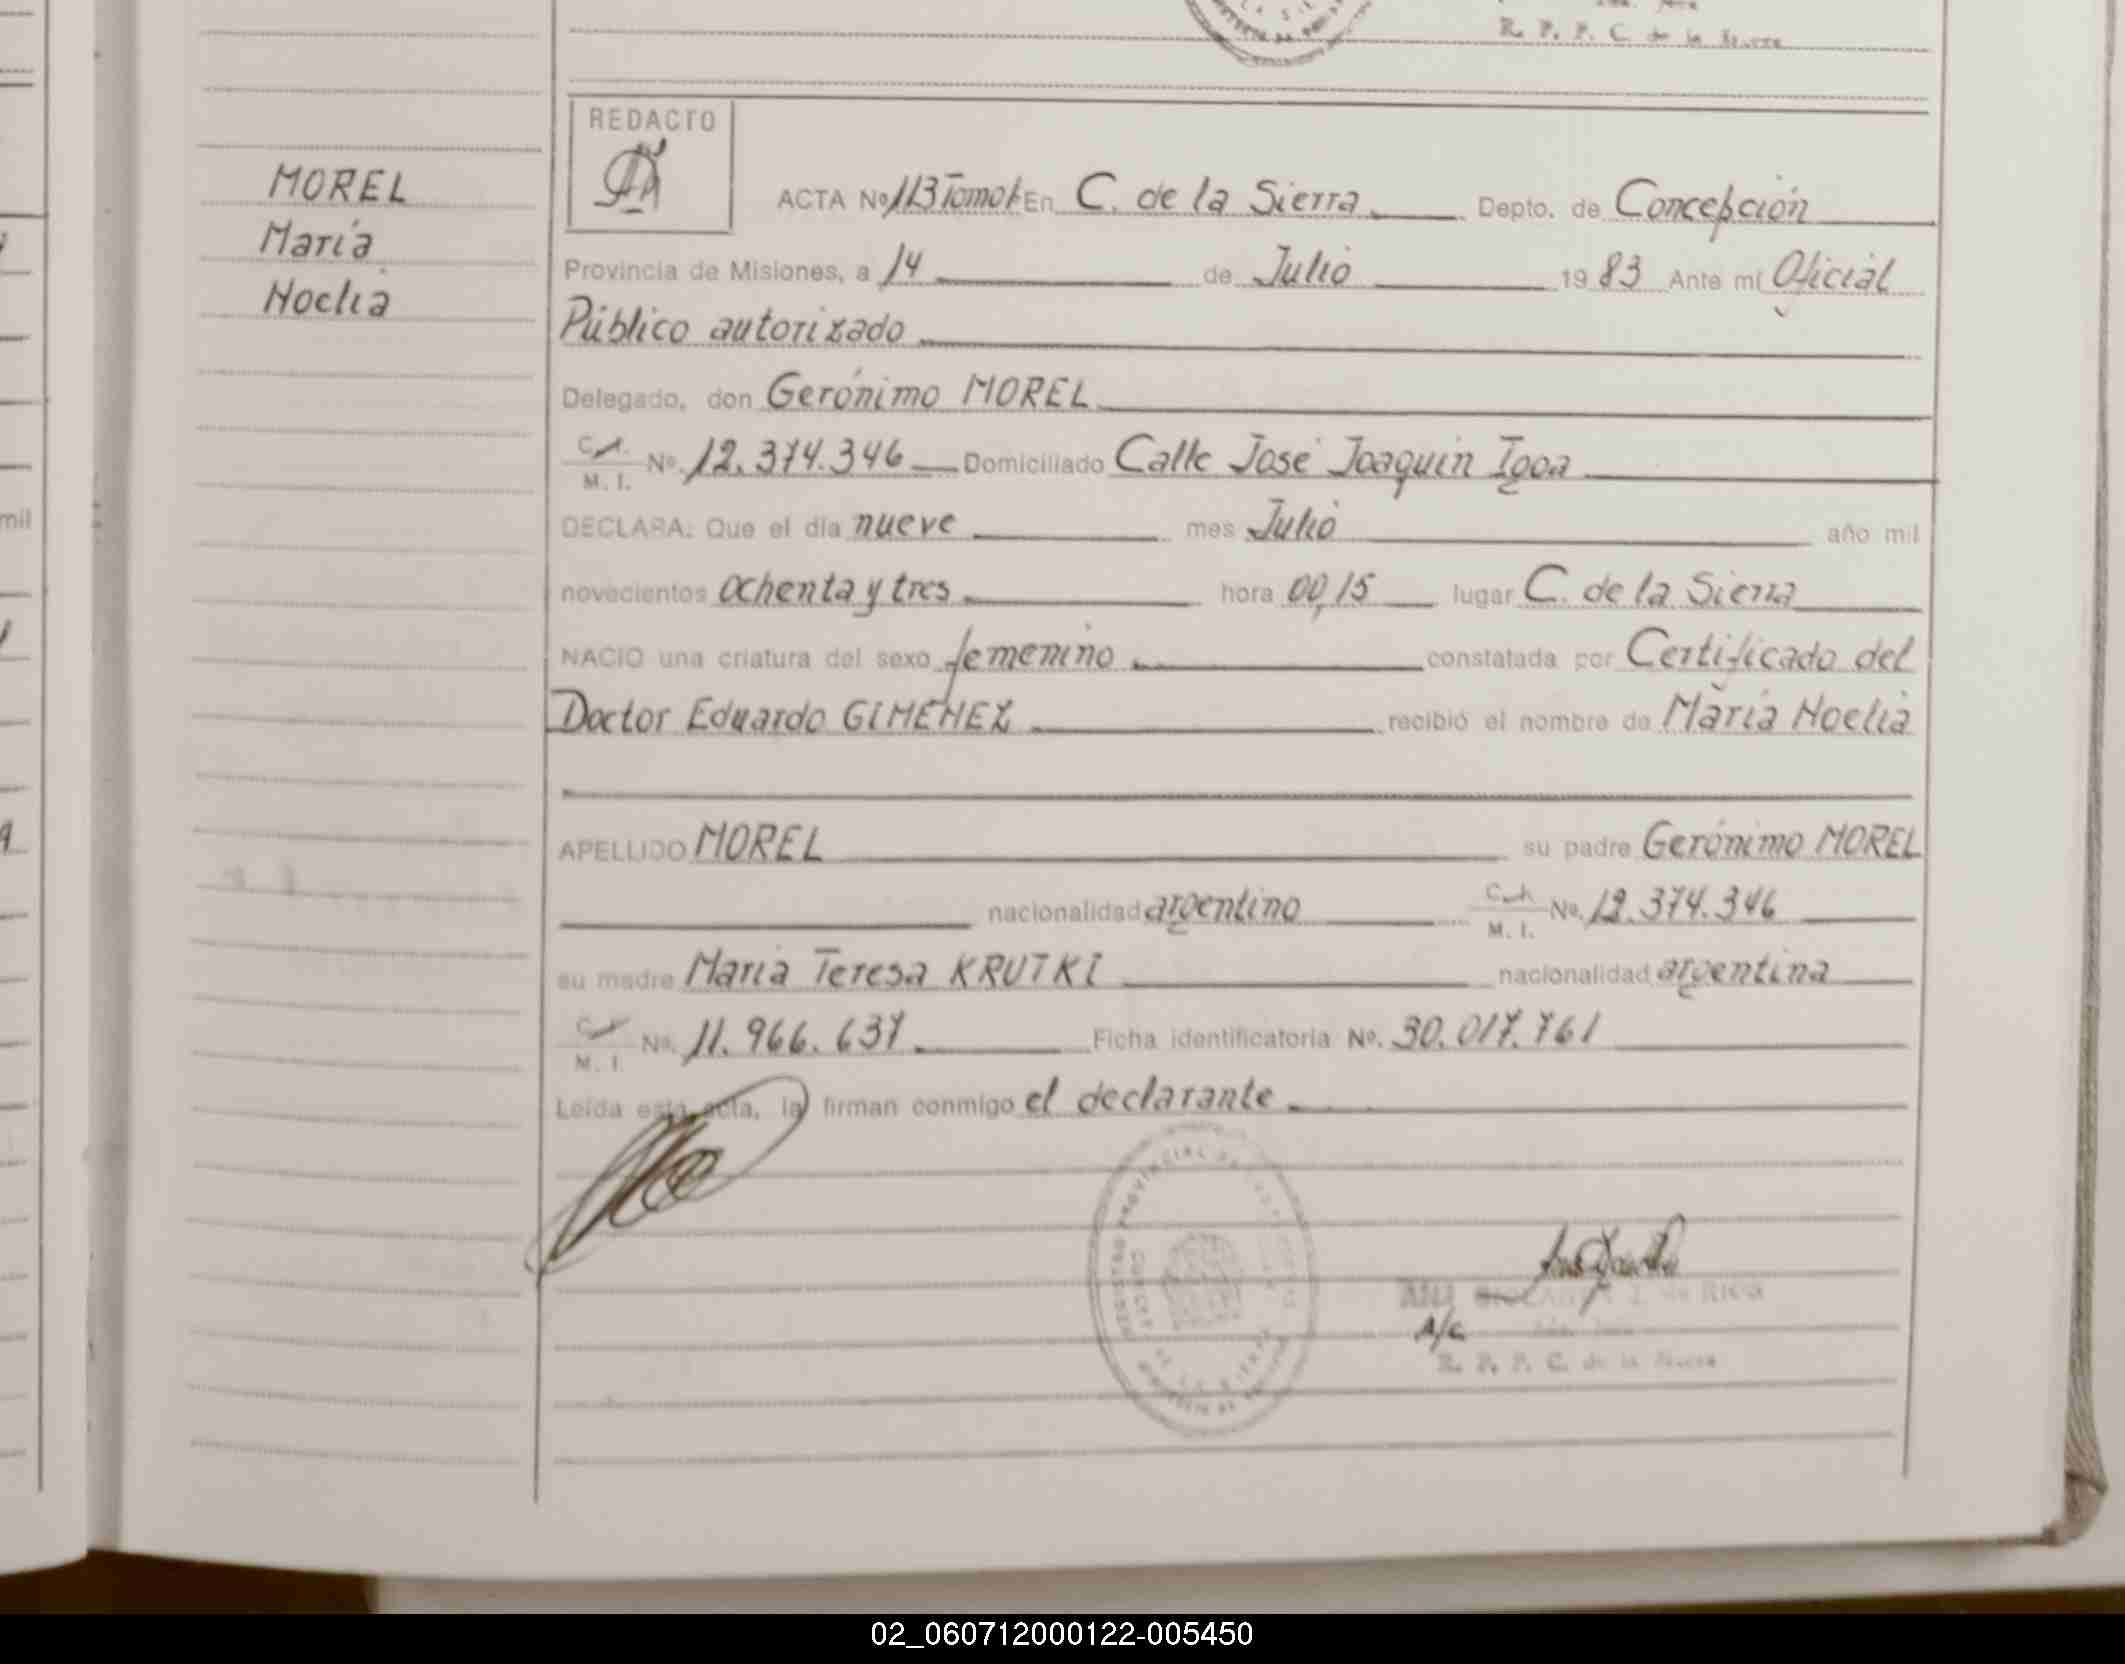 R. P. P. C. de la Sierra
REDACTO
MOREL
María
Noelia
ACTA Nº 113 Tomo I En C. de la Sierra Depto. de Concepción
Provincia de Misiones, a 14 de Julio 1983 Ante mí Oficial
Público autorizado
Delegado, don Gerónimo MOREL
C. I. M. I. Nº 12.374.346 Domiciliado Calle José Joaquín Igoa
DECLARA: Que el día nueve mes Julio año mil
novecientos ochenta y tres hora 00,15 lugar C. de la Sierra
NACIO una criatura del sexo femenino constatada por Certificado del
Doctor Eduardo GIMENEZ recibió el nombre de María Noelia
APELLIDO MOREL su padre Gerónimo MOREL
nacionalidad argentino C. I. M. I. Nº 12.374.346
su madre María Teresa KRUTKI nacionalidad argentina
C. I. M. I. Nº 11.966.637 Ficha identificatoria Nº. 30.017.761
Leída esta acta, la firman conmigo el declarante
REGISTRO PROVINCIAL DE
de Rica
A/C
R. P. P. C. de la Sierra
mil
02_060712000122-005450